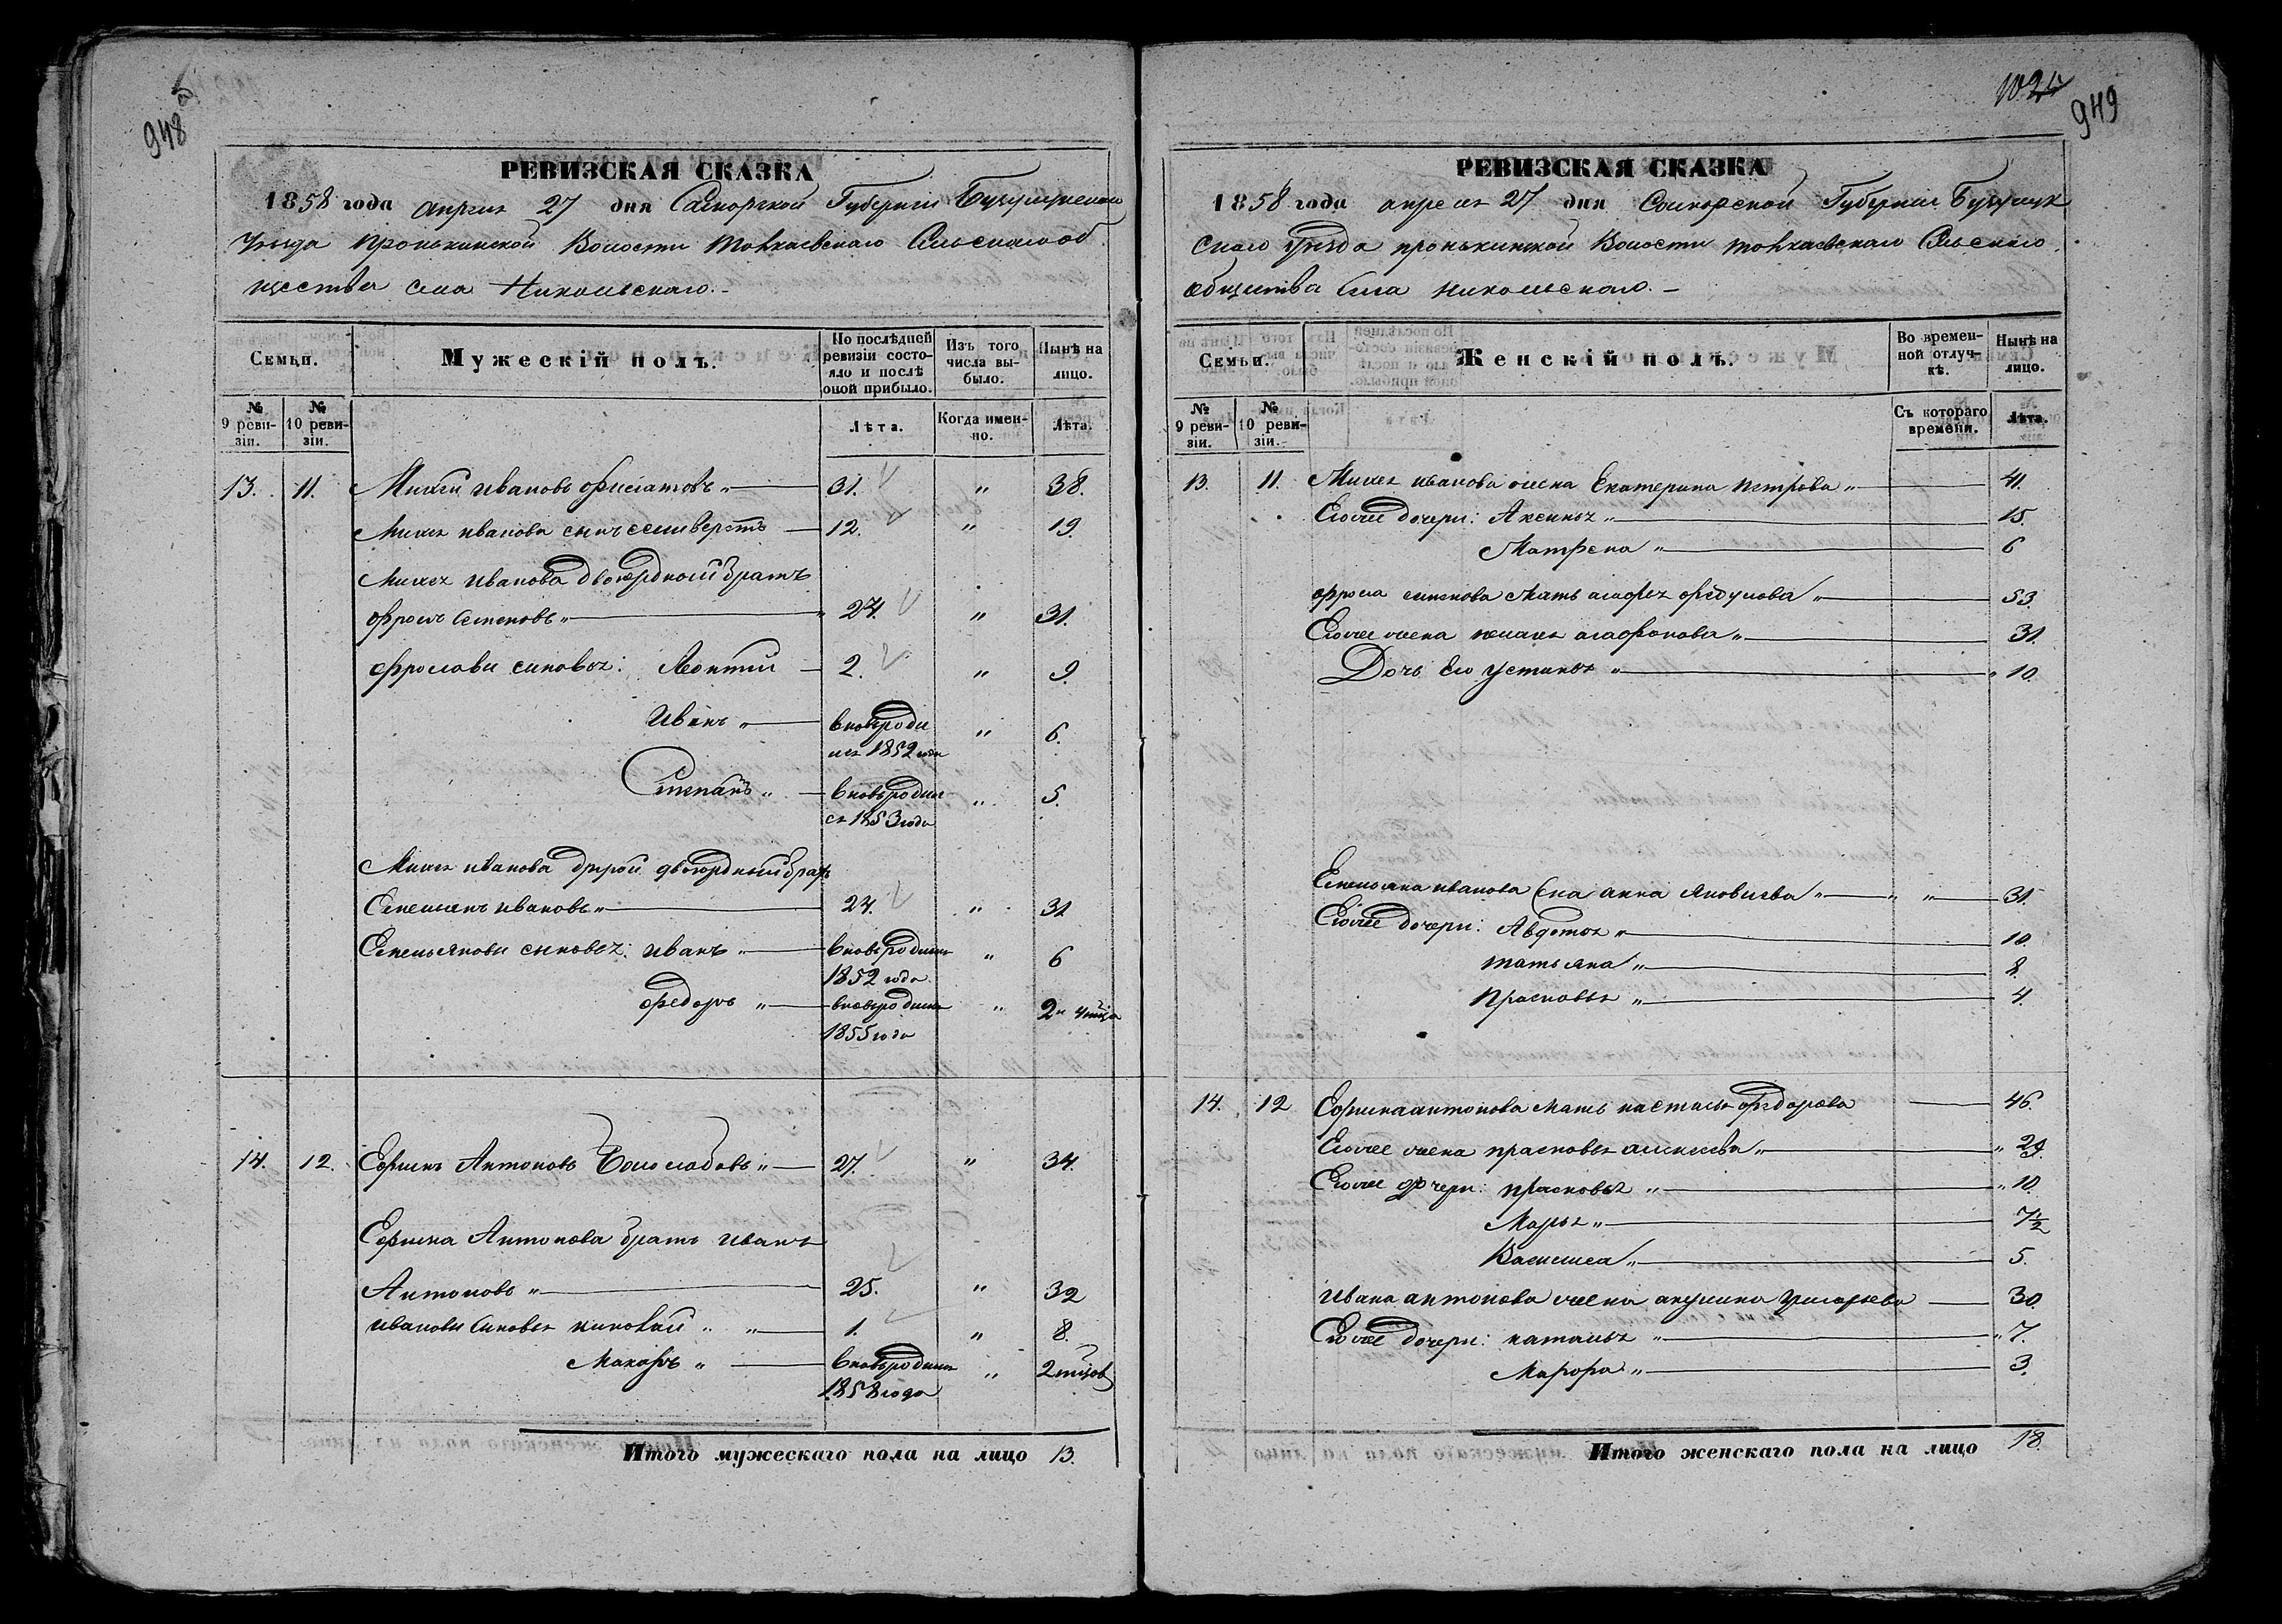 948
РЕВИЗСКАЯ СКАЗКА
1858 года апреля 27 дня Самарской Губернии Бузулукскаго
Уезда пронькинской Волости Токкаевскаго Сельскаго об
щества села Никольскаго.
Семьи.
Мужескій полъ.
По послѣдней ревизіи состояло и послѣ оной прибыло.
Изъ того числа выбыло.
Нынѣ на лицо.
№ 9 ревизіи.
№ 10 ревизіи.
Лѣта.
Когда именно.
Лѣта.
13. 11. Михей ивановъ 31. " 38.
Михея иванова сынъ селиверстъ 12. " 19.
Михея иванова двоюрдной братъ
фролъ семеновъ " 24. " 31.
фролови сыновья: Леонтий 2. " 9.
Иванъ " вновьроди " 6.
лся 1852 года
Степанъ " вновьродил " 5.
ся 1853 года
Михея иванова другой двоюрдный братъ
Емельянъ ивановъ " 24. " 31
Емельянови сыновья: иванъ " вновьродилъ " 6
1852 года
федоръ " вновьродилъ " 2 и 4 мца
1855 года
14. 12. Ефимъ Антоновъ " 27. " 34.
Ефима Антонова братъ иванъ
Антоновъ " 25. " 32
иванови сыновья " 1. " 8.
Макаръ " вновьродилъ " 2 мцов
1858 года
Итого мужескаго пола на лицо 13.
1024
949
РЕВИЗСКАЯ СКАЗКА
1858 года апреля 27 дня Самарской Губернии Бузулук
скаго Уезда пронькинской Волости токкаевскаго Сельскаго
общества села никольскаго.
Семьи.
Женскій полъ.
Во временной отлучкѣ.
Нынѣ на лицо.
№ 9 ревизіи.
№ 10 ревизіи.
Съ котораго времени.
Лѣта.
13. 11. Михея иванова жена Екатерина петрова " 41.
Еговее дочери: Аксинья " 15.
Матрена " 6
фрола семенова мать агафья федулова " 53.
Еговее жена агафонова " 31.
Дочь Его устинья " 10.
Емельяна иванова жена анна яковлева " 31.
Еговее дочери: Авдотья " 10.
татьяна " 8.
прасковья " 4.
14. 12 Ефима антонова мать настасья федорова 46.
Еговее жена прасковья алексеева " 29.
Еговее дочери: прасковья " 10.
Марья " 7½
Василиса " 5.
ивана антонова жена акулина григорьева 30.
Еговее дочери: наталья " 7.
Марфа " 3.
Итого женскаго пола на лицо 18.